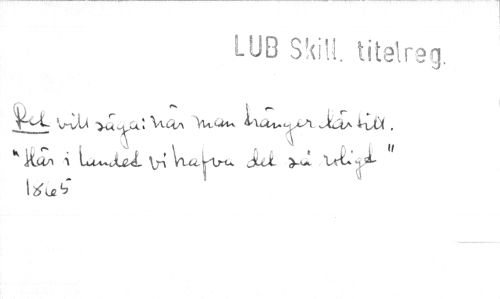 LUB Skill. titelreg.
Det vill säga: när man tränger därtill.
"Här i lundet vi hafva det så roligt"
1865